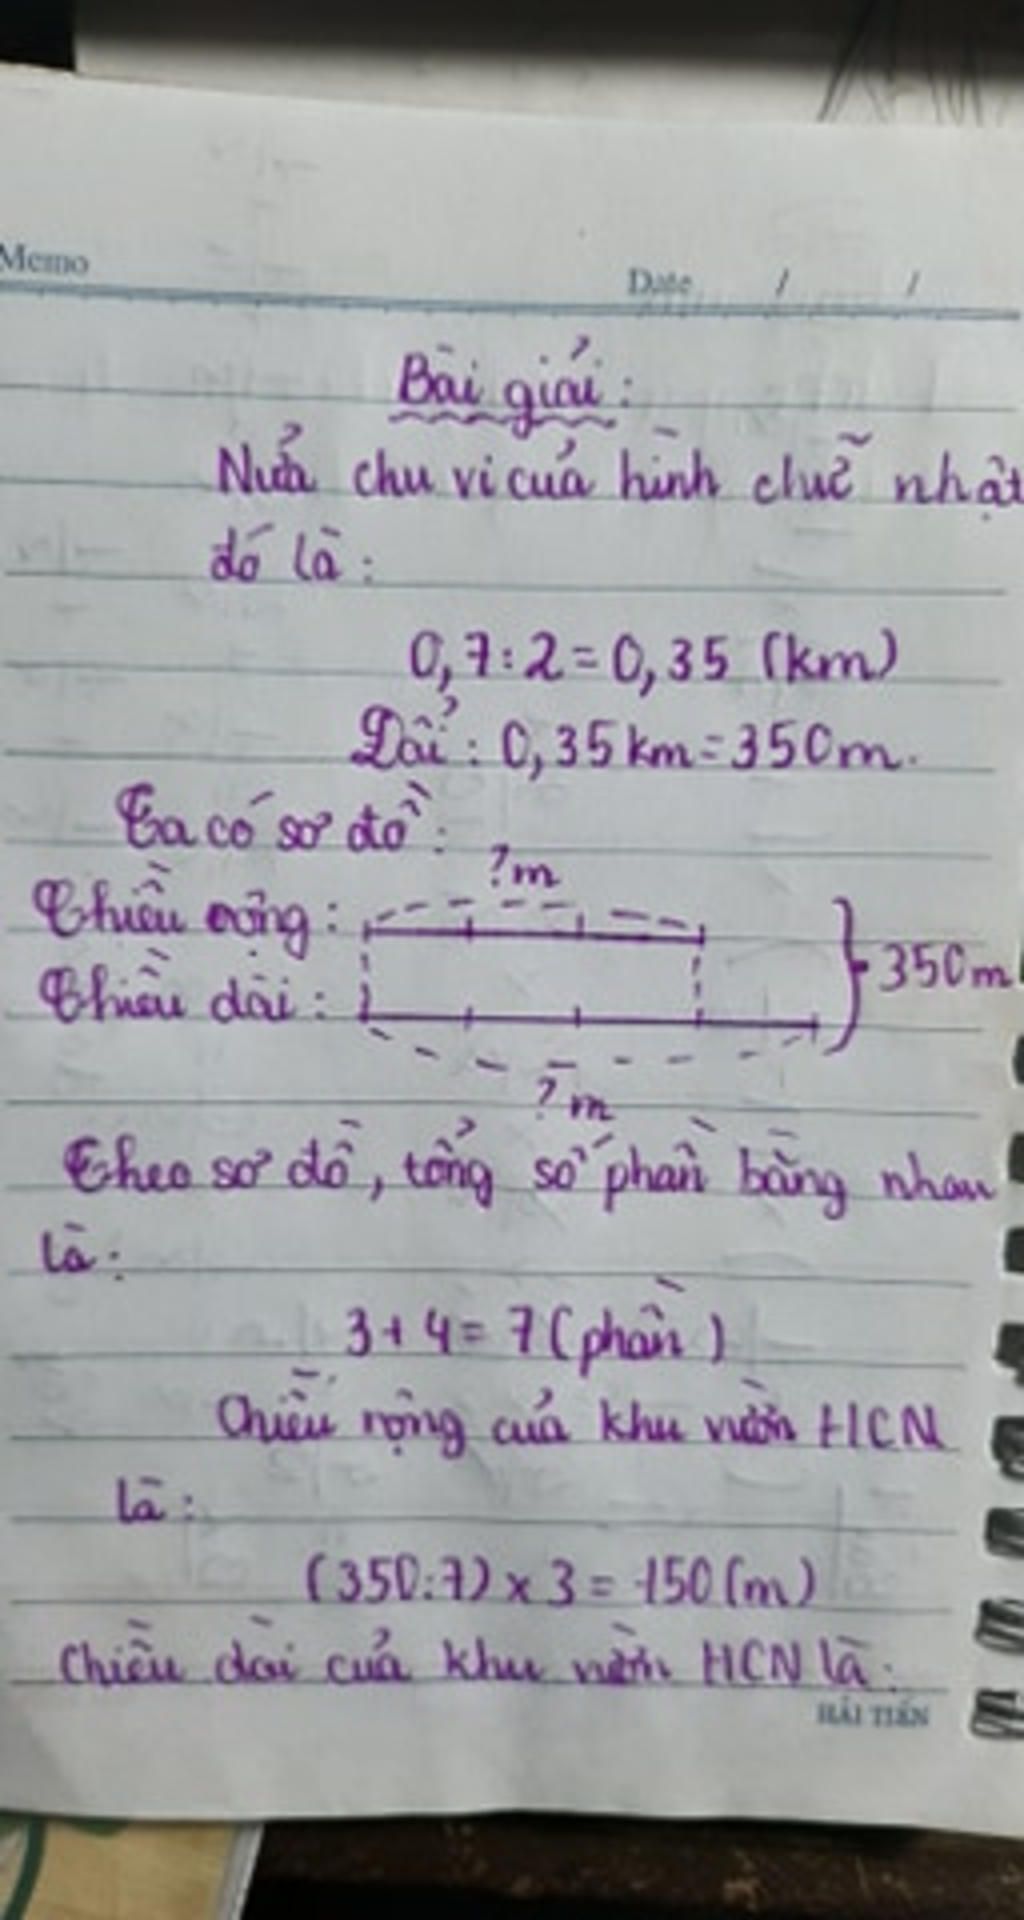 Memo
Date / /
Bài giải:
Nửa chu vi của hình chữ nhật
đó là:
0,7:2=0,35 (km)
Đổi: 0,35km=350m.
Ta có sơ đồ:
?m
Chiều rộng:
350m
Chiều dài:
?m
Theo sơ đồ, tổng số phần bằng nhau
là:
3+4=7(phần)
Chiều rộng của khu vườn HCN
là:
(350:7)x3=150(m)
Chiều dài của khu vườn HCN là:
HẢI TIẾN